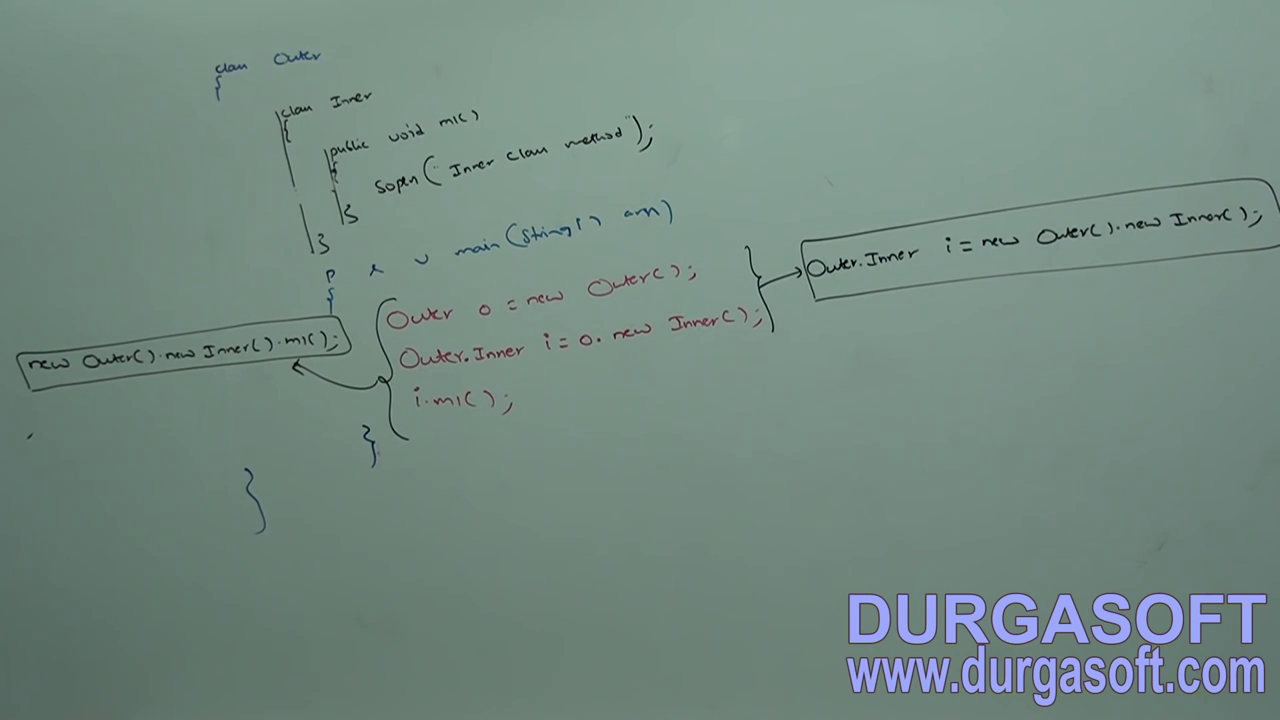 class Outer
{
class Inner
{
public void m1()
{
Sopln("Inner class method");
}
}
p s v main(String[] args)
{
Outer o = new Outer();
Outer.Inner i = o.new Inner();
i.m1();
}
}
Outer.Inner i = new Outer().new Inner();
new Outer().new Inner().m1();
DURGASOFT
www.durgasoft.com